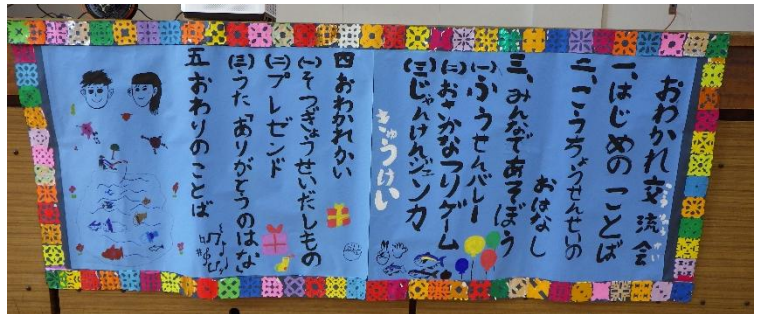 おわかれ交流会
こうりゅうかい
一、はじめの ことば
二、こうちょうせんせいの
おはなし
三、みんなであそぼう
(一)ふうせんバレー
(二)おさかなつりゲーム
(三)じゃんけんジェンカ
きゅうけい
四 おわかれかい
(一)そつぎょうせいだしもの
(二)プレゼント
(三)うた「ありがとうのはな
五 おわりのことば